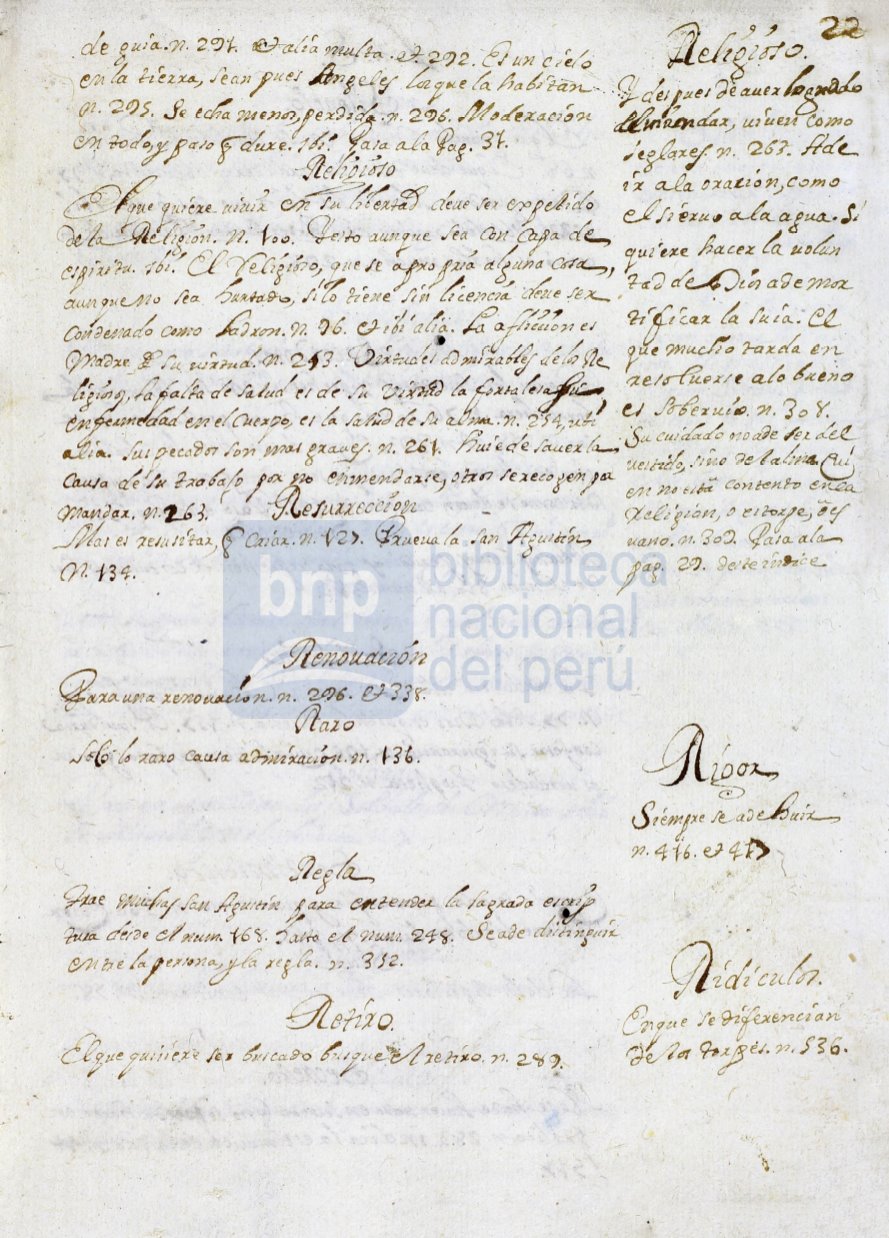 22
de guia. n. 291. et alia multa. et 292. Es un cielo
en la tierra, sean pues Angeles los que la habitan
n. 295. Se echa menos, perdida. n. 296. Moderacion
en todo, y paso q̃ dure. ibi. Pasa a la Pag. 31.
Religioso
El que quiere vivir en su libertad deve ser expelido
de la Religion. n. 100. Y esto aunque sea con capa de
espiritu. ibi. El Religioso, que se apropria alguna cosa,
aunque no sea hurtado, si lo tiene sin licencia deve ser
condenado como Ladron. n. 96. et ibi alia. La afliccion es
Madre de su virtud. n. 253. Virtudes admirables de los Re
ligiosos, la falta de salud es de su virtud la fortalesa,
enfermedad en el cuerpo, es la salud de su alma. n. 254, ubi
alia. sus pecados son mas graves. n. 261. huie de saver la
causa de su trabajo por no enmendarse, otros se recogen pa
mandar. n. 263.
Resurreccion
Mas es resusitar, q̃ Criar. n. 127. Pruevala San Agustin
N. 134.
Renovacion
Para una renovacion. n. 296. et 338.
Raro
Solo lo raro causa admiracion. n. 136.
Regla
trae muchas San Agustin para entender la sagrada escrip
tura desde el num. 168. hasta el num. 248. Se a de distinguir
entre la persona, y la regla. n. 352.
Retiro.
El que quiere ser buscado busque el retiro. n. 289.
Religioso.
Y despues de aver logrado
el mandar, viven como
seglares. n. 263. A de
ir a la oracion, como
el siervo a la agua. Si
quiere hacer la volun
tad de Dios a de mor
tificar la suia. El
que mucho tarda en
resolverse a lo bueno
es sobervio. n. 308.
Su cuidado no a de ser del
vestido, sino del alma. Qui
en no està contento en la
Religion, o es torpe, ò es
vano. n. 309. Pasa a la
pag. 29. deste indice
Rigor
Siempre se a de huir
n. 416. et 417
Ridiculos.
En que se diferencian
de los torpes. n. 536.
bnp biblioteca
nacional
del perú